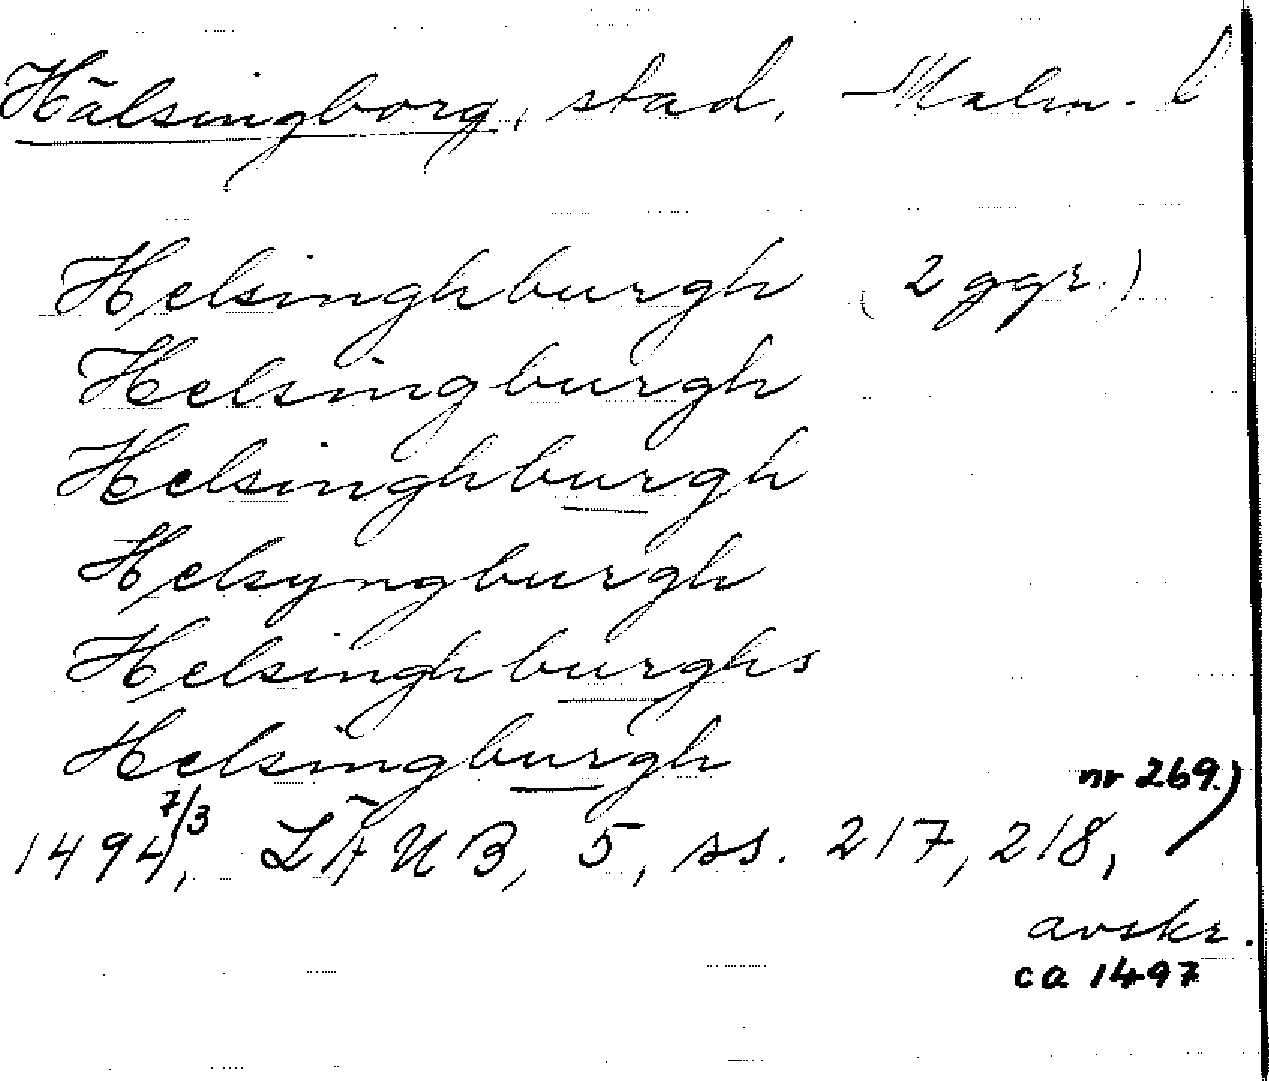 Hälsingborg, stad, Malm. l
Helsinghburgh (2 ggr.)
Helsingburgh
Helsinghburgh
Helsyngburgh
Helsinghburghs
Helsingburgh
nr 269.)
1494 7/3, LÄUB, 5, ss. 217, 218,
avskr.
ca 1497